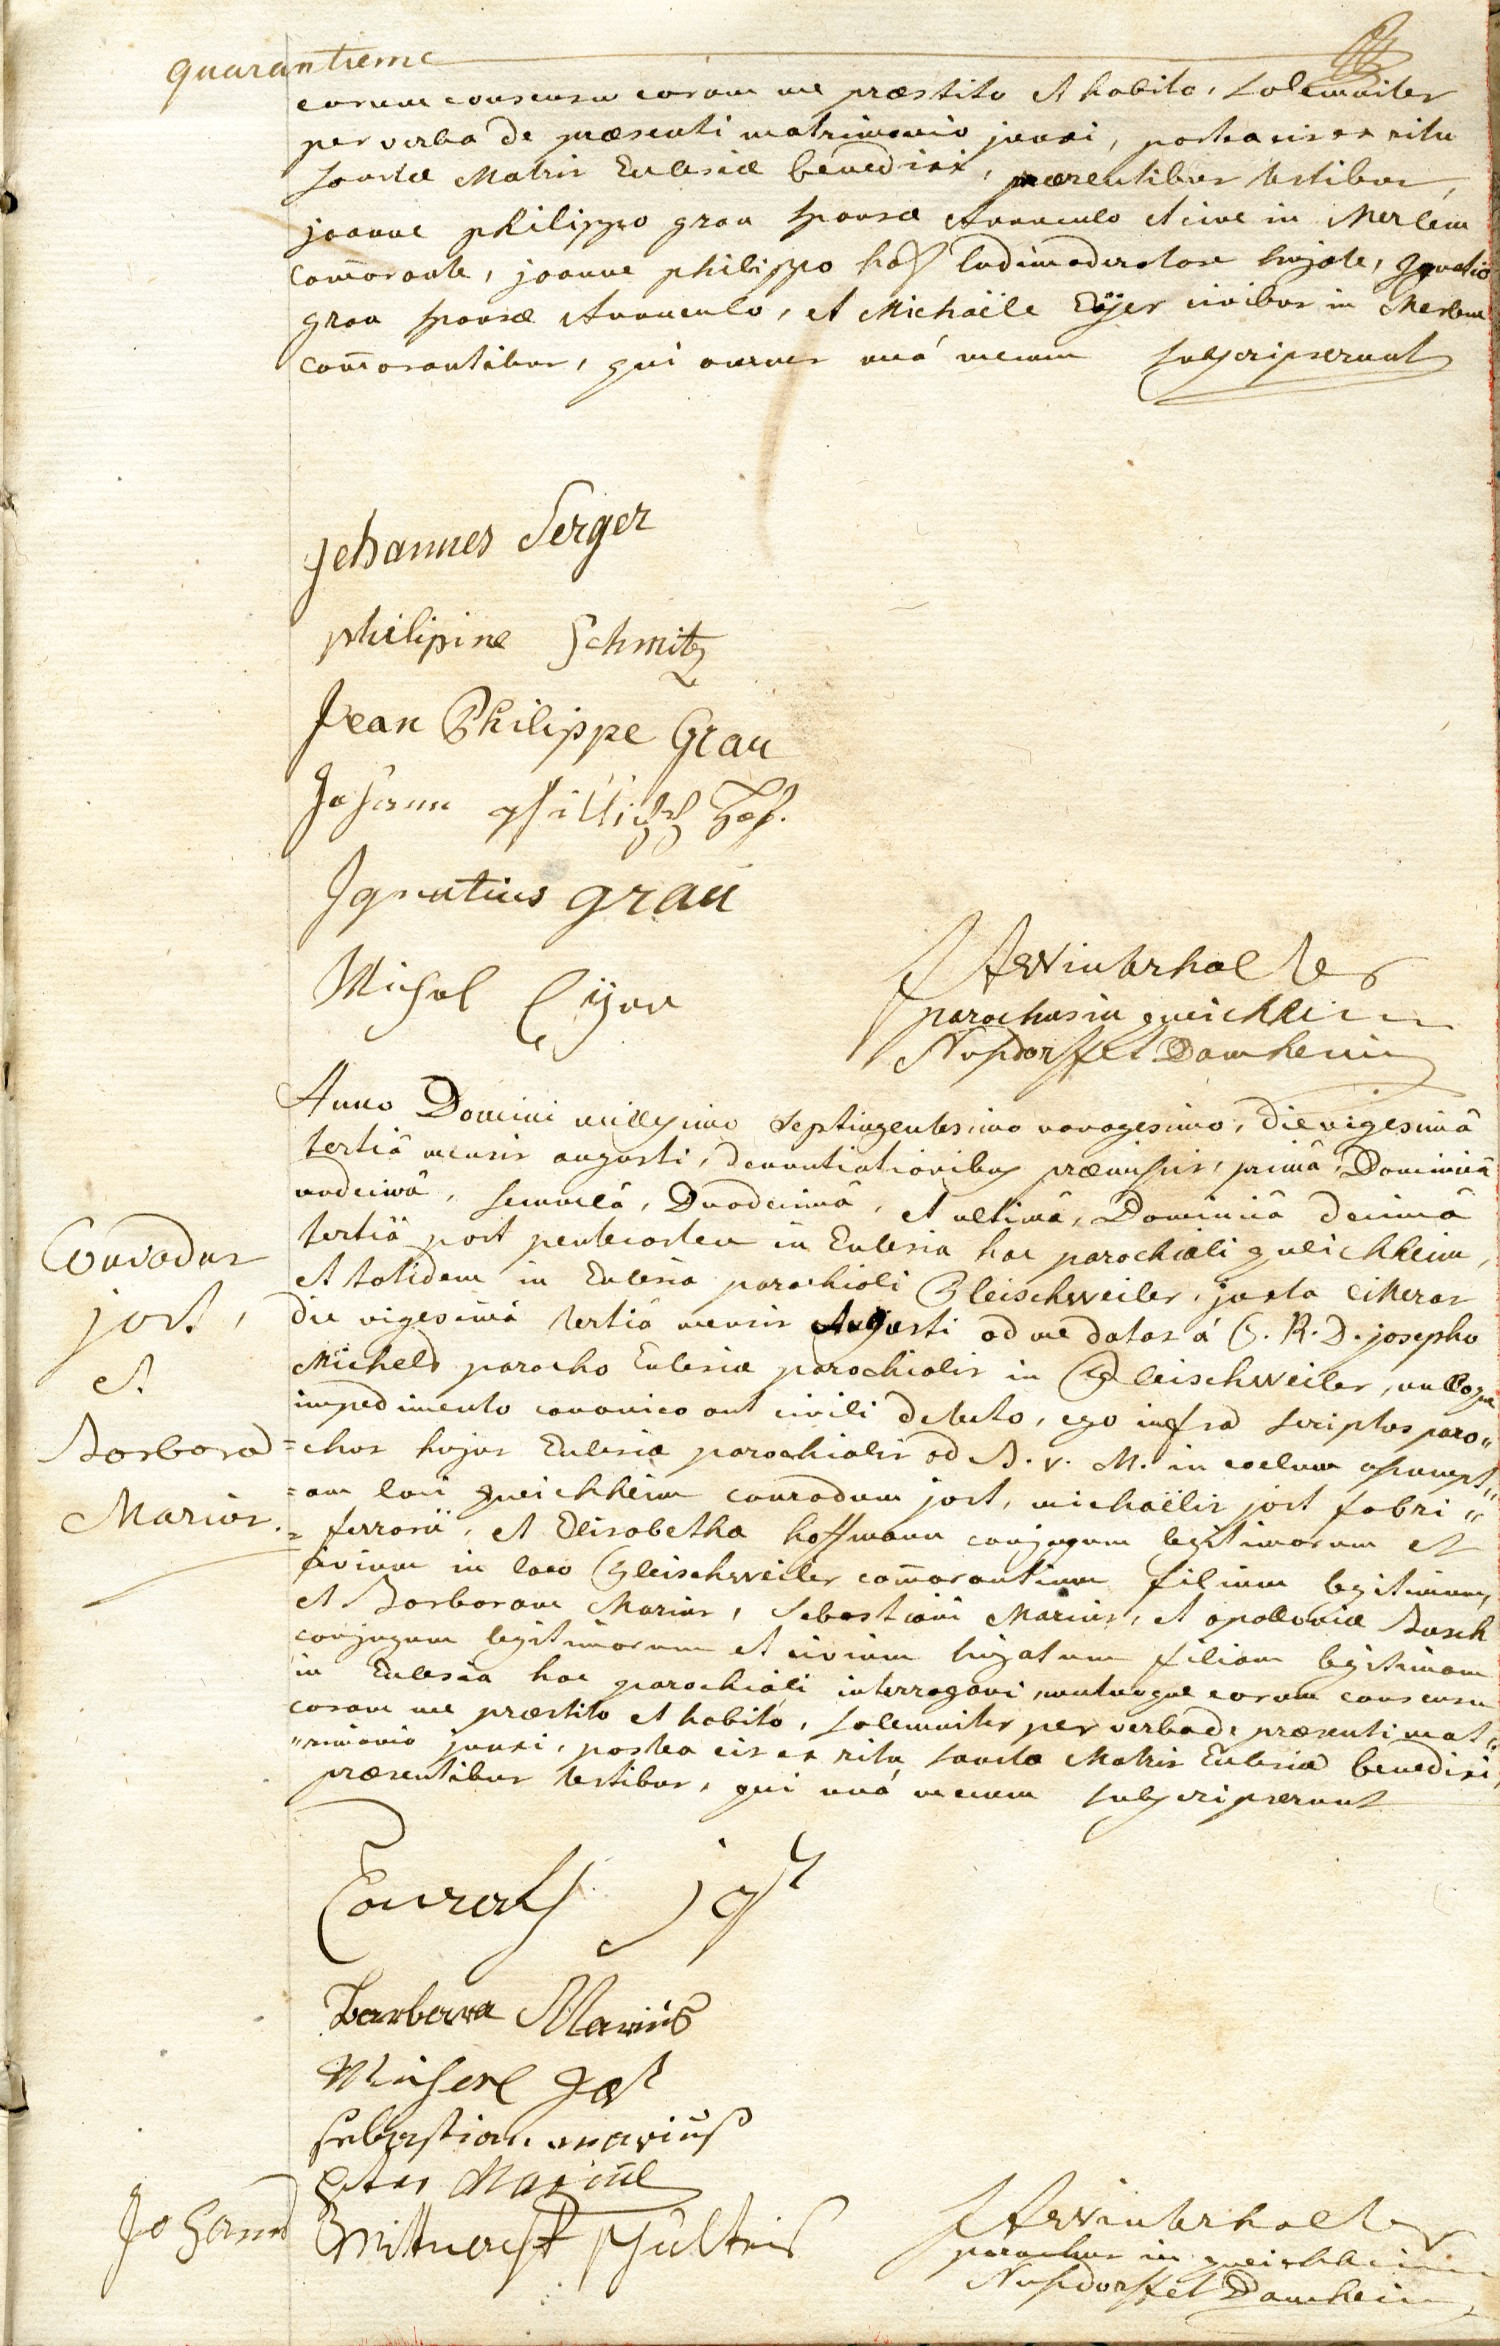 quarantieme
eorum consensu coram me præstito et habito, solemniter
per verba de præsenti matrimonio junxi, postea eis ex ritu
sanctæ Matris Ecclesiæ benedixi, præsentibus testibus,
joanne philippo grau sponsæ Avunculo et cive in Merlem
com̄orante, joanne philippo hoff ludimoderatore hujate, Ignatio
grau sponsæ Avunculo, et Michaële Eÿer civibus in Merlem
com̄orantibus, qui omnes unâ mecum subscripserunt
Johannes Serger
philipine Schmitz
Jean Philippe Grau
Johann Hof.
Ignatius grau
Michel Eÿer
Winterhalter
parochus in queichheim
Nusdorff et Damheim
Anno Domini millesimo septingentesimo nonagesimo, die vigesimâ
tertiâ mensis augusti, denuntiationibus præmissis, primâ, Dominicâ
undecimâ, secundâ, Duodecimâ, et ultimâ, Dominicâ decimâ
tertiâ post pentecosten in Ecclesia hac parochiali queichheim,
et totidem in Ecclesia parochiali Gleischweiler, juxta litteras
die vigesimâ tertiâ mensis Augusti ad me datas á R. D. josepho
Michels parocho Ecclesiæ parochialis in Gleischweiler, nulloque
impedimento canonico aut civili detecto, ego infra scriptus paro"
=chus hujus Ecclesiæ parochialis ad B. v. M. in coelum assumpt"
=am loci queichheim conradum jost, michaëlis jost fabri"
=ferrarii, et Elisabetha hoffmann conjugum legitimorum et
civium in loco Gleischweiler com̄orantium filium legitimum,
et Barbaram Marius, Sebastiani Marius, et apolloniæ Busch
conjugum legitimorum et civium hujatum filiam legitimam
in Ecclesia hac parochiali interrogavi, mutuoque eorum consensu
coram me præstito et habito, solemniter per verba de præsenti mat"
"rimonio junxi, postea eis ex ritu sanctæ Matris Ecclesiæ benedixi,
præsentibus testibus, qui unâ mecum subscripserunt
Conradus
jost,
et
Barbara
Marius.
Conrath jost
Barbara Marius
Michael Jost
sebastian marius
Peter Marius
Johann schultheis
Winterhalter
parochus in queichheim
Nusdorff et Damheim